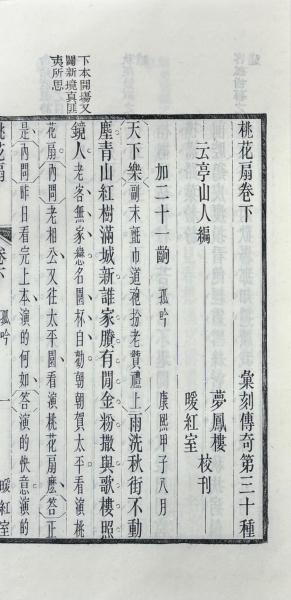 下本開場又
闢新境真匪
夷所思
桃花扇卷下 彙刻傳奇第三十種
云亭山人編
夢鳳樓
暖紅室 校刊
加二十一齣 孤吟 康熙甲子八月
天下樂 副末氊巾道袍扮老贊禮上 雨洗秋街不動
塵青山紅樹滿城新誰家賸有閒金粉撒與歌樓照
鏡人 老客無家戀名園杯自勸朝朝賀太平看演桃
花扇 內問 老相公又往太平園看演桃花扇麽 答 正
是 內問 昨日看完上本演的何如 答 演的快意演的
桃花扇 卷下 孤吟 一 暖紅室